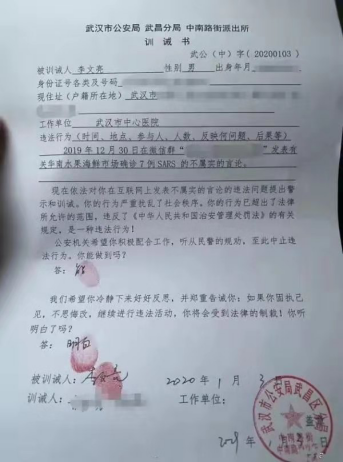 武汉市公安局 武昌分局 中南路街派出所
训 诫 书
武公(中)字(20200103)
被训诫人 李文亮 性别 男 出生年月
身份证件种类及号码
现住址(户籍所在地) 武汉市
工作单位 武汉市中心医院
违法行为(时间、地点、参与人、人数、反映何问题、后果等)
2019年12月30日在微信群" "发表有
关华南水果海鲜市场确诊7例SARS的不属实的言论。
现在依法对你在互联网上发表不属实的言论的违法问题提出警
示和训诫。你的行为严重扰乱了社会秩序。你的行为已超出了法律
所允许的范围,违反了《中华人民共和国治安管理处罚法》的有关
规定,是一种违法行为!
公安机关希望你积极配合工作,听从民警的规劝,至此中止违
法行为。你能做到吗?
答:能
我们希望你冷静下来好好反思,并郑重告诫你:如果你固执己
见,不思悔改,继续进行违法活动,你将会受到法律的制裁!你听
明白了吗?
答:明白
被训诫人:李文亮 2020年1月3日
训诫人: 工作单位:
武汉市公安局武昌区分局